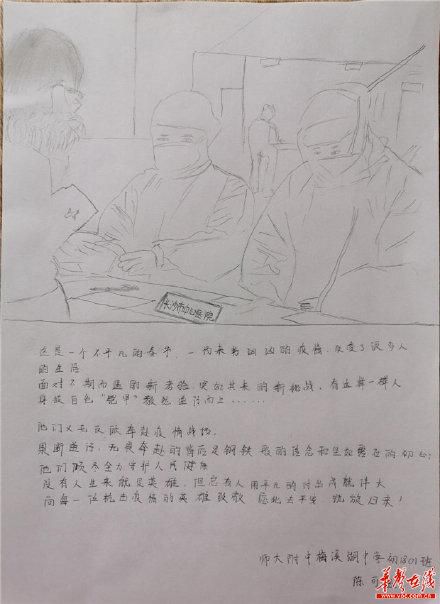 长沙市中心医院
这是一个不平凡的春节,一场来势汹汹的疫情,改变了很多人
的生活
面对不期而遇的新考验,突如其来的新挑战,有这样一群人
身放白色“铠甲”毅然逆行而上......
他们义无反顾奔赴疫情战场
果断逆行,无畏奔赴的背后是钢铁般的信念和
他们倾尽全力守护人民健康
没有人生来就是英雄,但总有人用平凡的付出成就伟大
向每一位抗击疫情的英雄致敬 愿此去平安,凯旋归来!
师大附中梅溪湖中学初1801班
陈可
华声在线